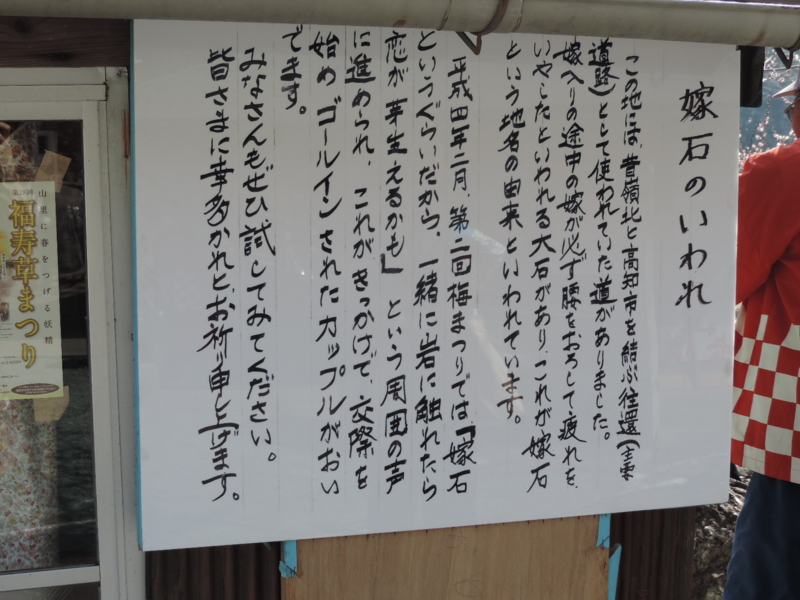 嫁石のいわれ
この地には、昔嶺北と高知市を結ぶ往還(主要
道路)として使われていた道がありました。
嫁入りの途中の嫁が必ず腰をおろして疲れを
いやしたといわれる大石があり、これが嫁石
という地名の由来といわれています。
平成四年二月、第二回梅まつりでは『嫁石
というぐらいだから、一緒に岩に触れたら
恋が芽生えるかも』という周囲の声
に進められ、これがきっかけで、交際を
始めゴールインされたカップルがおい
でます。
みなさんもぜひ試してみてください。
皆さまに幸多かれと、お祈り申し上げます。
山里に春をつげる妖精
福寿草まつり